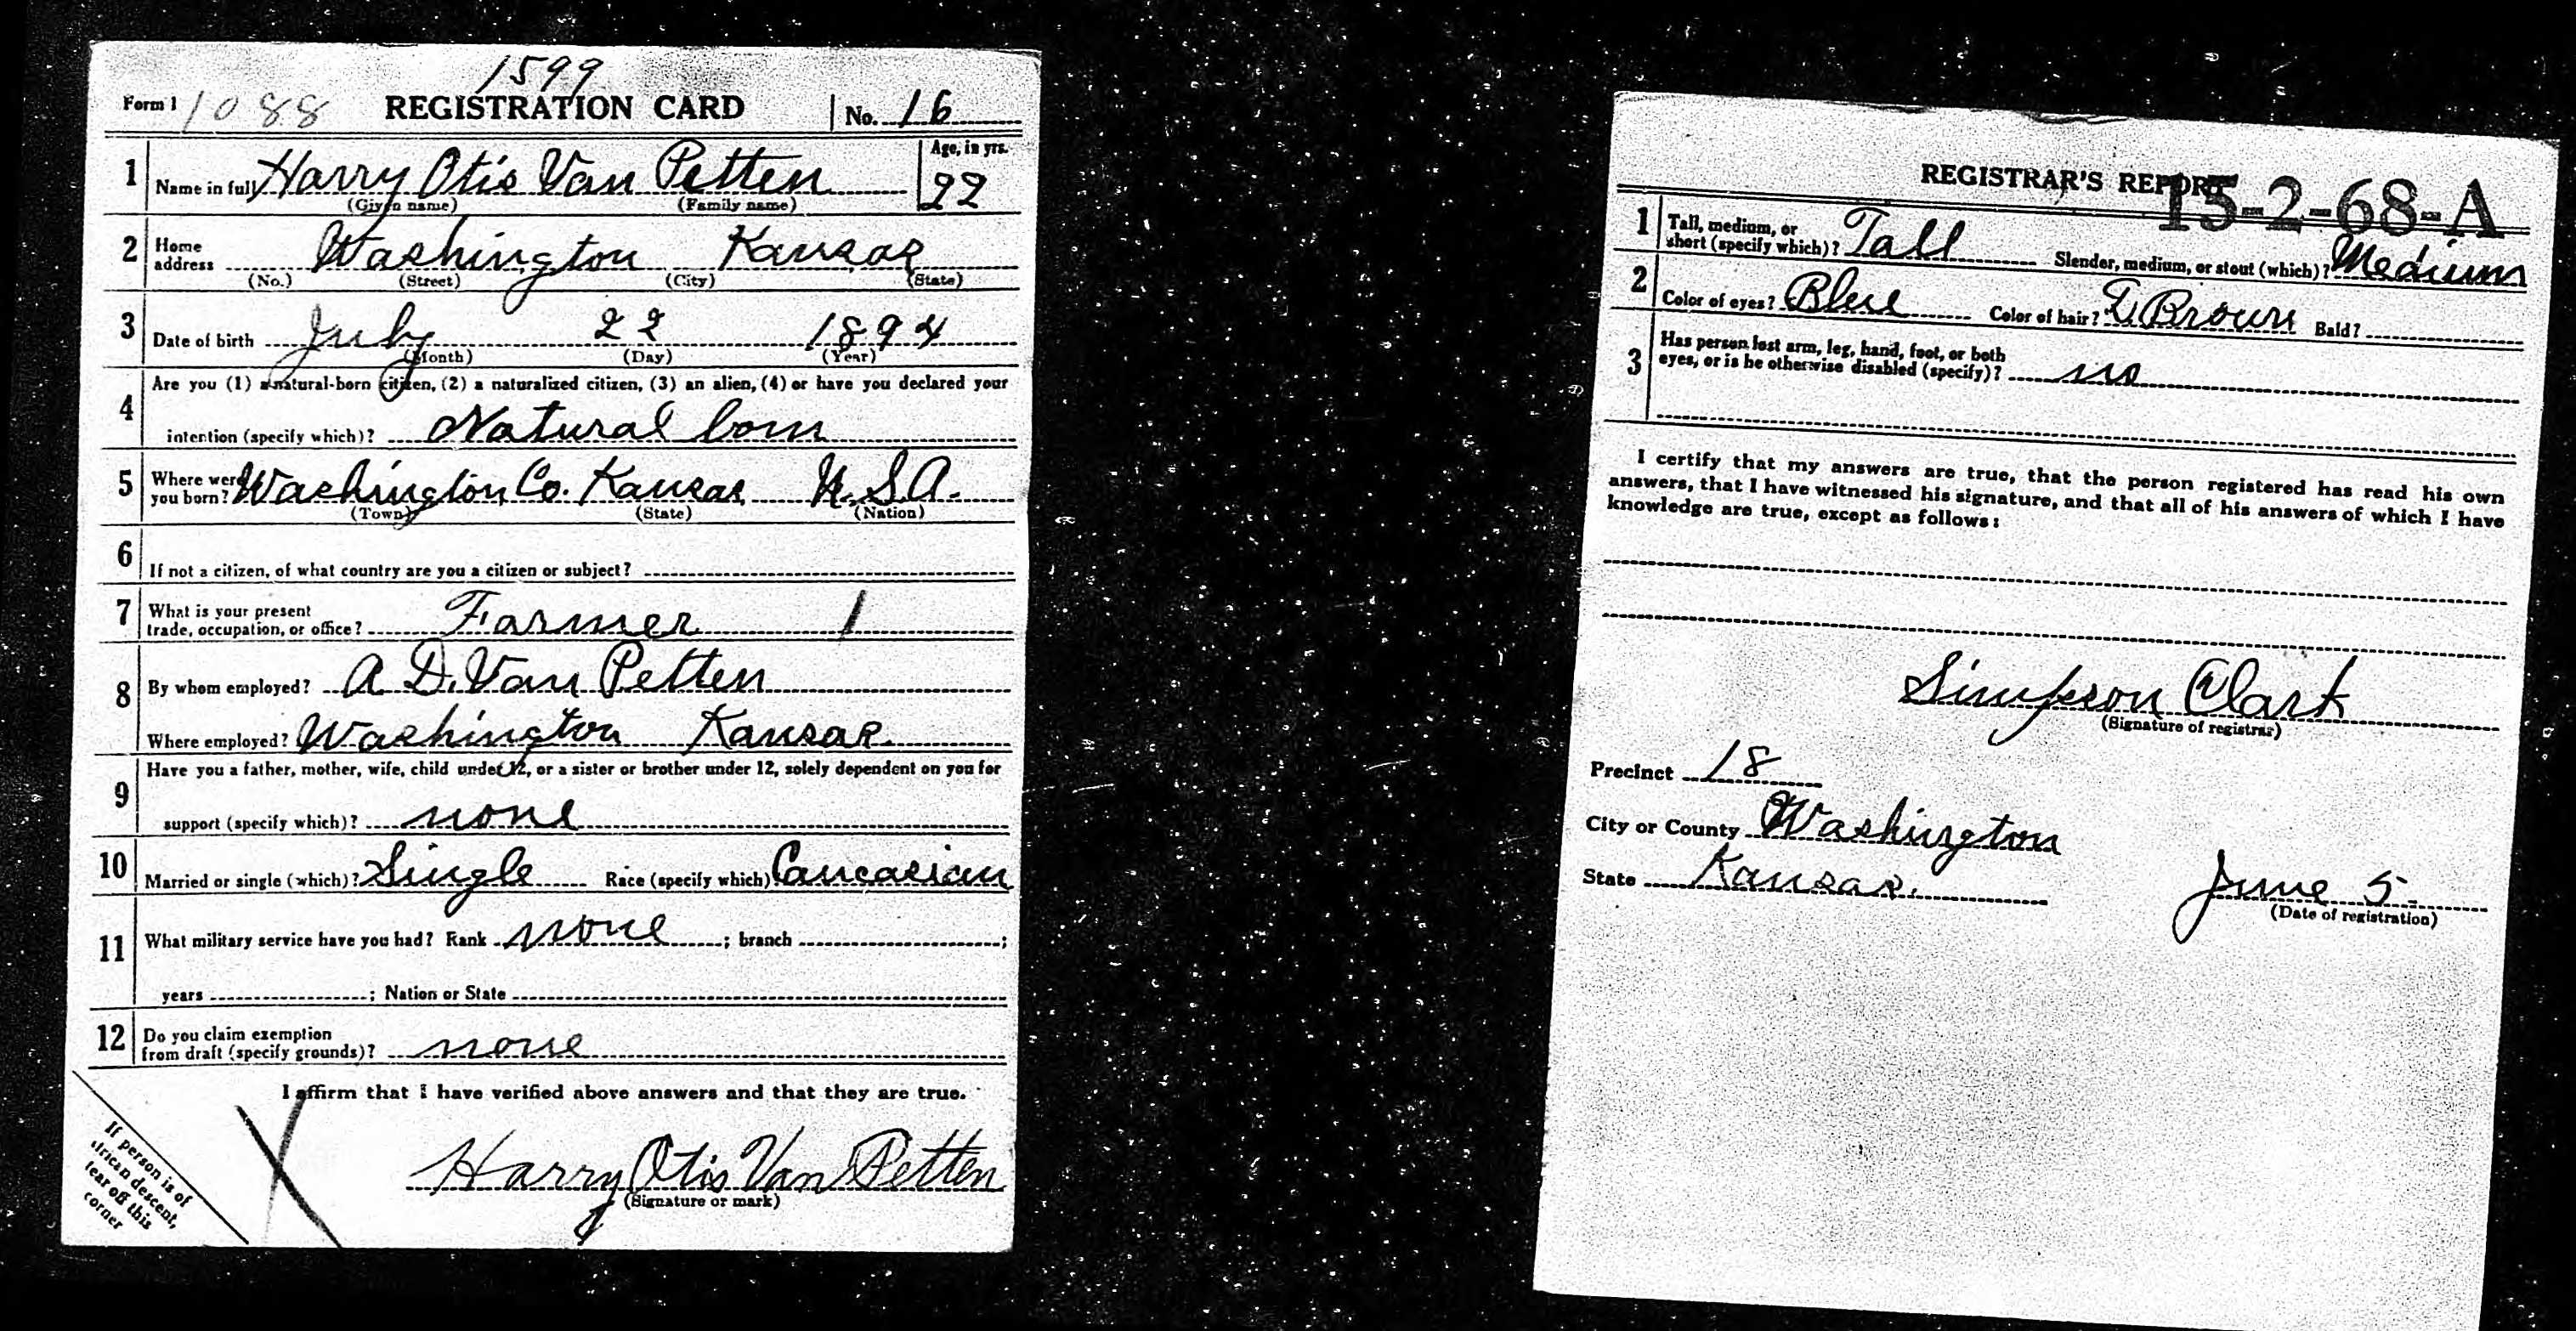 1599
Form 1 1088 REGISTRATION CARD No. 16
1 Name in full Harry Otis Van Petten Age, in yrs. 22
(Given name) (Family name)
2 Home address Washington Kansas
(No.) (Street) (City) (State)
3 Date of birth July 22 1894
(Month) (Day) (Year)
4 Are you (1) a natural-born citizen, (2) a naturalized citizen, (3) an alien, (4) or have you declared your
intention (specify which)? Natural born
5 Where were you born? Washington Co. Kansas U.S.A.
(Town) (State) (Nation)
6 If not a citizen, of what country are you a citizen or subject?
7 What is your present
trade, occupation, or office? Farmer 1
8 By whom employed? A. D. Van Petten
Where employed? Washington Kansas
9 Have you a father, mother, wife, child under 12, or a sister or brother under 12, solely dependent on you for
support (specify which)? none
10 Married or single (which)? Single Race (specify which) Caucasian
11 What military service have you had? Rank none ; branch ;
years ; Nation or State
12 Do you claim exemption
from draft (specify grounds)? none
I affirm that I have verified above answers and that they are true.
If person is of
African descent,
tear off this
corner
Harry Otis Van Petten
(Signature or mark)
REGISTRAR'S REPORT
15-2-68-A
1 Tall, medium, or
short (specify which)? Tall Slender, medium, or stout (which)? Medium
2 Color of eyes? Blue Color of hair? D Brown Bald?
3 Has person lost arm, leg, hand, foot, or both
eyes, or is he otherwise disabled (specify)? no
I certify that my answers are true, that the person registered has read his own
answers, that I have witnessed his signature, and that all of his answers of which I have
knowledge are true, except as follows:
Simpson Clark
(Signature of registrar)
Precinct 18
City or County Washington
State Kansas. June 5
(Date of registration)